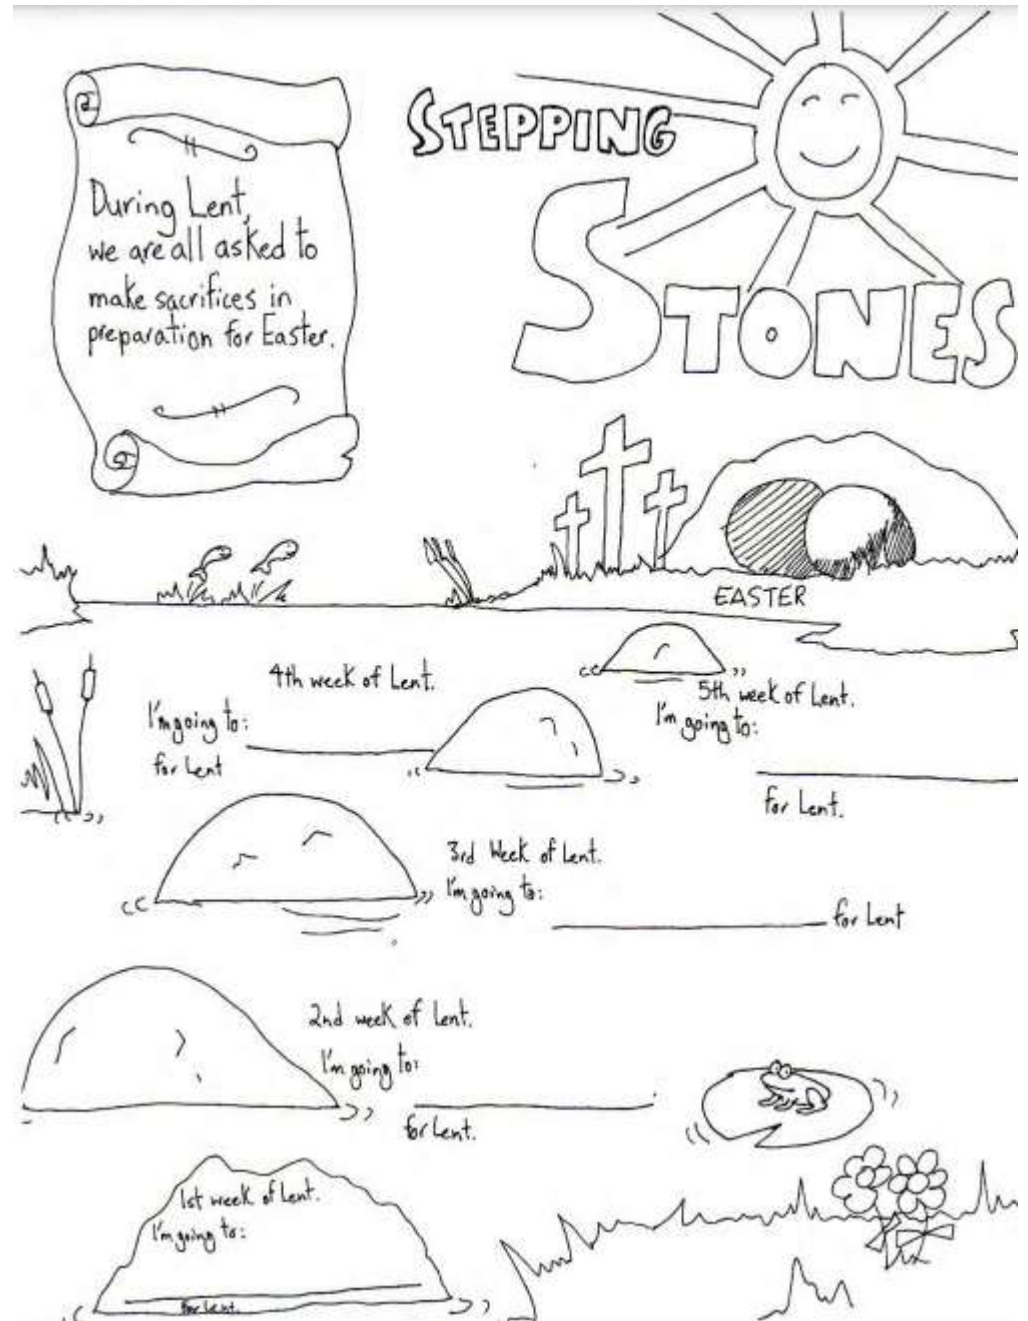 STEPPING
STONES
During Lent,
we are all asked to
make sacrifices in
preparation for Easter.
EASTER
4th week of Lent.
I'm going to:
for Lent
5th week of Lent.
I'm going to:
for Lent.
3rd Week of Lent.
I'm going to:
for Lent
2nd week of Lent.
I'm going to:
for Lent.
1st week of Lent.
I'm going to:
for Lent.